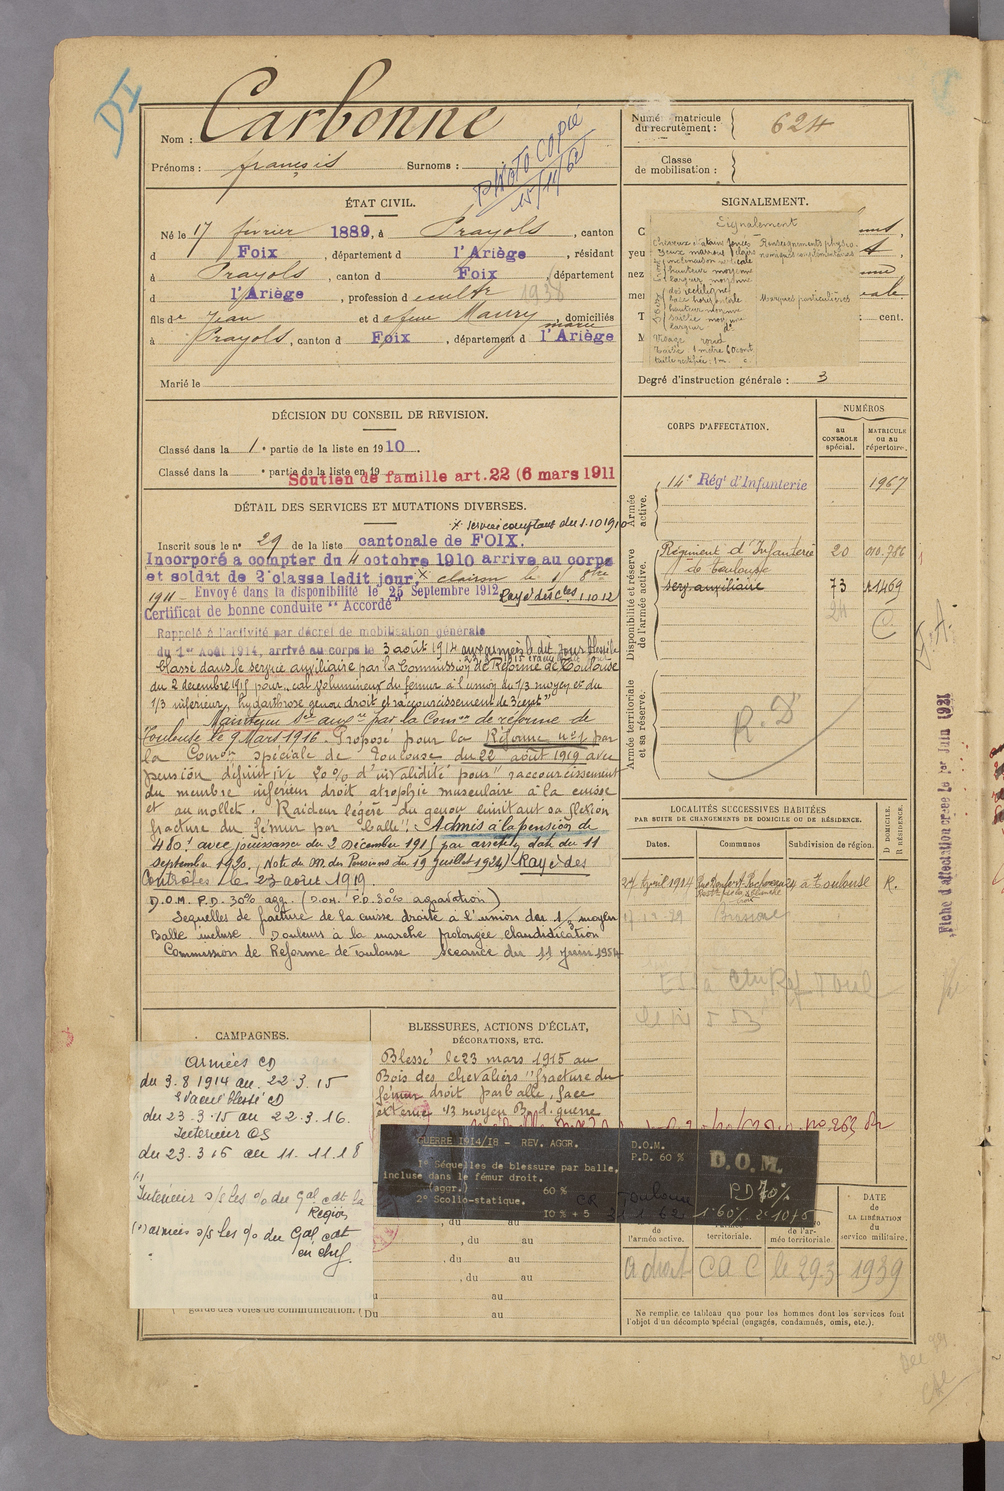 DI
Nom : Carbonne
Prénoms : françois Surnoms :
PHOTOCOPIÉ
15/11/62
Numé matricule
du recrutement : 624
Classe
de mobilisation :
ÉTAT CIVIL.
Né le 17 février 1889, à Prayols, canton
d Foix, département d l'Ariège, résidant
à Prayols, canton d Foix, département
d l'Ariège, profession d cultr 1938
fils de Jean et d efeue Maury marie, domiciliés
à Prayols, canton d Foix, département d l'Ariège
Marié le
SIGNALEMENT.
Signalement
Cheveux chatains foncés Renseignements physio-
Yeux marrons f claire nomiques complémentaires
inclinaison verticale
hauteur moyenne
largeur moyenne
dos rectiligne
base horizontale Marques particulières
hauteur moyenne
saillie moyenne
largeur d°
Visage rond
Taille : 1 mètre 60 cent
taille rectifiée : 1 m. c.
cent.
Degré d'instruction générale : 3
DÉCISION DU CONSEIL DE REVISION.
Classé dans la 1e partie de la liste en 1910.
Classé dans la e partie de la liste en 19
Soutien de famille art. 22 (6 mars 1911
DÉTAIL DES SERVICES ET MUTATIONS DIVERSES.
x service comptant du 1.10 1910
Inscrit sous le n° 29 de la liste cantonale de FOIX.
Incorporé a compter du 4 octobre 1910 arrive au corps
et soldat de 2e classe ledit jour, x clairon le 1/ 8bre
1911 - Envoyé dans la disponibilité le 25 Septembre 1912 Rayé des cles 1.10.12
Certificat de bonne conduite "Accordé"
Rappelé à l'activité par décret de mobilisation générale
du 1er Août 1914, arrivé au corps le 3 août 1914 aux armées le dit jour blessé le
Classé dans le service auxiliaire par la Commission de Réforme de Toulouse
du 2 decembre 1915 pour "cal volumineux du femur à l'union du 1/3 moyen et du
1/3 inférieur, hydarthrose genou droit et raccourcissement de 3 cent"
Maintenu Sce auxre par la Comon de réforme de
Toulouse le 9 Mars 1916. Proposé pour la Réforme n°1 par
la Comon spéciale de Toulouse du 22 août 1919 avec
pension définitive 20 % d'invalidité pour "raccourcissement
du membre inférieur droit atrophie musculaire à la cuisse
et au mollet. Raideur légère du genou limitant sa flexion
fracture du fémur par balle". Admis à la pension de
480f avec jouissance du 2 Décembre 1915 par arrêté en date du 11
Septembre 1920. (Note du M. des Pensions du 19 juillet 1924) Rayé des
Contrôles le 23 aout 1919.
D.O.M. P.D. 30% agg. (D.O.M. P.D. 30% aggravation)
Sequelles de fracture de la cuisse droite à l'union du 1/3 moyen
Balle incluse. Douleurs à la marche prolongée claudidication
Commission de Reforme de Toulouse seeance du 11 juin 1954
CORPS D'AFFECTATION.
NUMÉROS
au
CONTROLE
spécial.
MATRICULE
ou au
répertoire.
Armée
active.
14e Régt d'Infanterie 1967
Disponibilité et réserve
de l'armée active.
Régiment d'Infanterie 20 010.786
de Toulouse
serv. auxiliaire 73 R1469
24 C
Armée territoriale
et sa réserve.
R. D
LOCALITÉS SUCCESSIVES HABITÉES
PAR SUITE DE CHANGEMENTS DE DOMICILE OU DE RÉSIDENCE.
Dates. Communes Subdivision de région. D DOMICILE. R RÉSIDENCE.
à Toulouse R.
Fiche d'affectation créée le 1er Juin 1921
CAMPAGNES.
Armées CD
du 3.8 1914 au 22.3.15
Evacué blessé CD
du 23.3.15 au 22.3.16.
Interieur CS
du 23.3.16 au 11.11.18
(1)
Intérieur s/s les o/ du Gal cdt la
Region
(2) armées s/s les o/ du Gal cdt
en chef.
garde des voies de communication. Du au
BLESSURES, ACTIONS D'ÉCLAT,
DÉCORATIONS, ETC.
Blessé le 23 mars 1915 au
Bois des chevaliers "fracture du
fémur droit par balle, face
externe 1/3 moyen B. d. guerre
GUERRE 1914/18 - REV. AGGR.
1° Séquelles de blessure par balle,
incluse dans le fémur droit.
(aggr.) 60 %
2° Scolio-statique.
10 % + 5
D.O.M.
P.D. 60 %
CR Toulouse
31.1.62
D.O.M.
PD 70 %
1° 60% 2° 10+5
, du au
, du au
, du au
, du au
au
au
de
l'armée active.
territoriale.
de l'ar-
mée territoriale.
DATE
de
LA LIBÉRATION
du
service militaire.
a droit CAC le 29.3 1939
Ne remplir ce tableau que pour les hommes dont les services font
l'objet d'un décompte spécial (engagés, condamnés, omis, etc.).